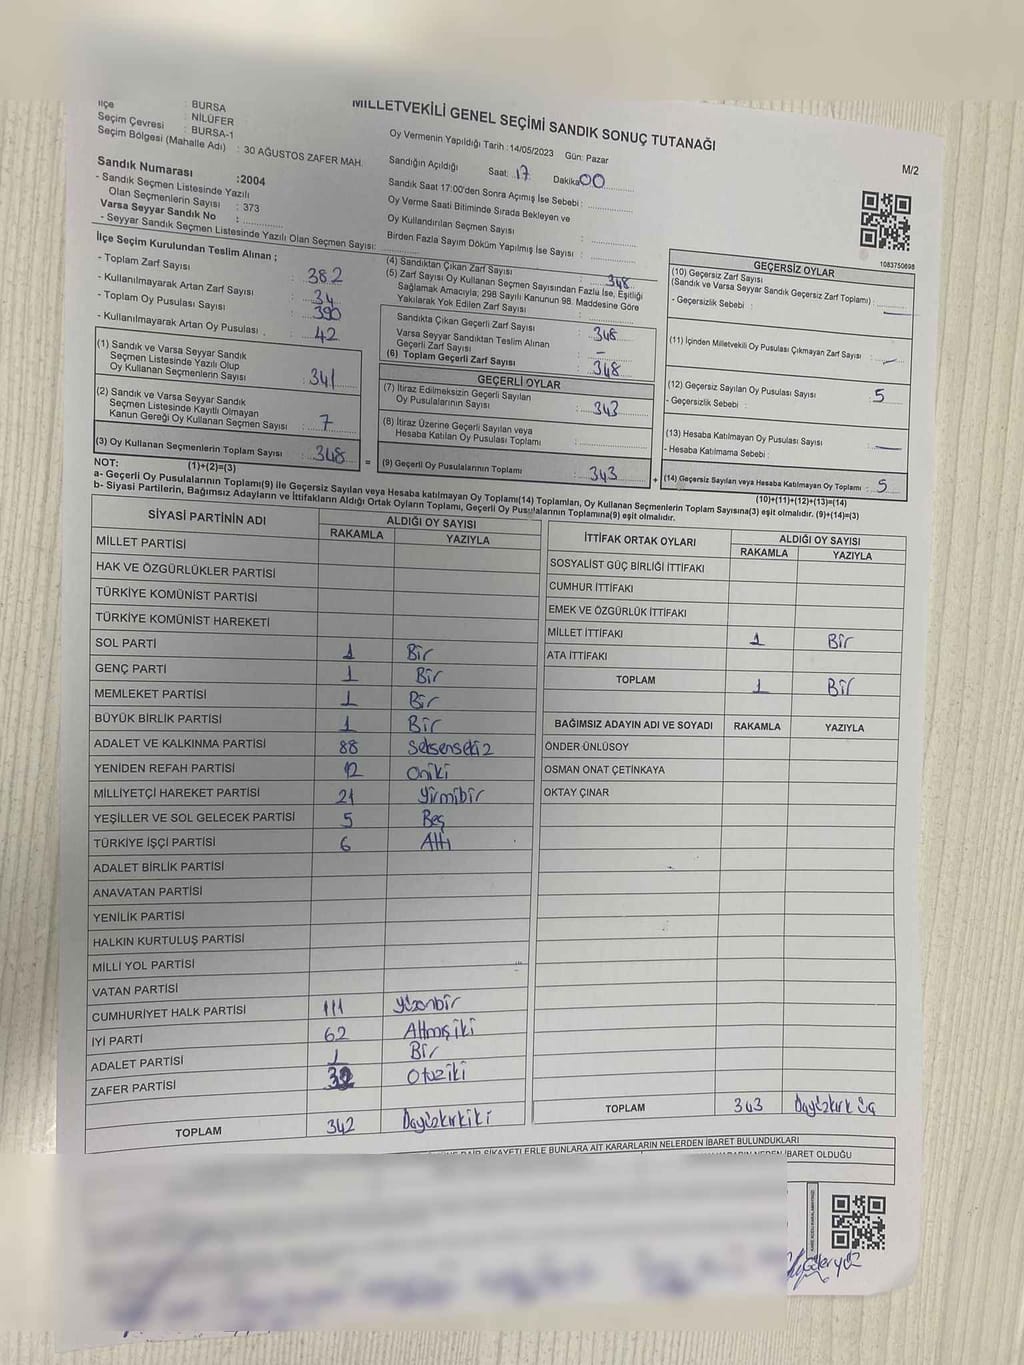 MİLLETVEKİLİ GENEL SEÇİMİ SANDIK SONUÇ TUTANAĞI
M/2
BURSA
İlçe : NİLÜFER
Seçim Çevresi : BURSA-1
Seçim Bölgesi (Mahalle Adı) : 30 AĞUSTOS ZAFER MAH.
Sandık Numarası :2004
- Sandık Seçmen Listesinde Yazılı
Olan Seçmenlerin Sayısı : 373
Varsa Seyyar Sandık No :
- Seyyar Sandık Seçmen Listesinde Yazılı Olan Seçmen Sayısı:
Oy Vermenin Yapıldığı Tarih :14/05/2023 Gün: Pazar
Sandığın Açıldığı Saat: 17 Dakika: 00
Sandık Saat 17:00'den Sonra Açımış İse Sebebi :
Oy Verme Saati Bitiminde Sırada Bekleyen ve
Oy Kullandırılan Seçmen Sayısı :
Birden Fazla Sayım Döküm Yapılmış İse Sayısı :
1083750698
İlçe Seçim Kurulundan Teslim Alınan ;
- Toplam Zarf Sayısı : 382
- Kullanılmayarak Artan Zarf Sayısı : 34
- Toplam Oy Pusulası Sayısı : 390
- Kullanılmayarak Artan Oy Pusulası : 42
(1) Sandık ve Varsa Seyyar Sandık
Seçmen Listesinde Yazılı Olup
Oy Kullanan Seçmenlerin Sayısı : 341
(2) Sandık ve Varsa Seyyar Sandık
Seçmen Listesinde Kayıtlı Olmayan
Kanun Gereği Oy Kullanan Seçmen Sayısı : 7
(3) Oy Kullanan Seçmenlerin Toplam Sayısı : 348
(1)+(2)=(3)
(4) Sandıktan Çıkan Zarf Sayısı : 348
(5) Zarf Sayısı Oy Kullanan Seçmen Sayısından Fazla İse, Eşitliği
Sağlamak Amacıyla, 298 Sayılı Kanunun 98. Maddesine Göre
Yakılarak Yok Edilen Zarf Sayısı :
Sandıkta Çıkan Geçerli Zarf Sayısı : 348
Varsa Seyyar Sandıktan Teslim Alınan
Geçerli Zarf Sayısı : -
(6) Toplam Geçerli Zarf Sayısı : 348
GEÇERLİ OYLAR
(7) İtiraz Edilmeksizin Geçerli Sayılan
Oy Pusulalarının Sayısı : 343
(8) İtiraz Üzerine Geçerli Sayılan veya
Hesaba Katılan Oy Pusulası Toplamı :
= (9) Geçerli Oy Pusulalarının Toplamı : 343 +
GEÇERSİZ OYLAR
(10) Geçersiz Zarf Sayısı
(Sandık ve Varsa Seyyar Sandık Geçersiz Zarf Toplamı) :
- Geçersizlik Sebebi :
(11) İçinden Milletvekili Oy Pusulası Çıkmayan Zarf Sayısı : -
(12) Geçersiz Sayılan Oy Pusulası Sayısı : 5
- Geçersizlik Sebebi :
(13) Hesaba Katılmayan Oy Pusulası Sayısı :
- Hesaba Katılmama Sebebi :
(14) Geçersiz Sayılan veya Hesaba Katılmayan Oy Toplamı : 5
(10)+(11)+(12)+(13)=(14)
NOT:
a- Geçerli Oy Pusulalarının Toplamı(9) ile Geçersiz Sayılan veya Hesaba katılmayan Oy Toplamı(14) Toplamları, Oy Kullanan Seçmenlerin Toplam Sayısına(3) eşit olmalıdır. (9)+(14)=(3)
b- Siyasi Partilerin, Bağımsız Adayların ve İttifakların Aldığı Ortak Oyların Toplamı, Geçerli Oy Pusulalarının Toplamına(9) eşit olmalıdır.
SİYASİ PARTİNİN ADI ALDIĞI OY SAYISI
RAKAMLA YAZIYLA
MİLLET PARTİSİ
HAK VE ÖZGÜRLÜKLER PARTİSİ
TÜRKİYE KOMÜNİST PARTİSİ
TÜRKİYE KOMÜNİST HAREKETİ
SOL PARTİ 1 Bir
GENÇ PARTİ 1 Bir
MEMLEKET PARTİSİ 1 Bir
BÜYÜK BİRLİK PARTİSİ 1 Bir
ADALET VE KALKINMA PARTİSİ 88 Seksensekiz
YENİDEN REFAH PARTİSİ 12 Oniki
MİLLİYETÇİ HAREKET PARTİSİ 21 Yirmibir
YEŞİLLER VE SOL GELECEK PARTİSİ 5 Beş
TÜRKİYE İŞÇİ PARTİSİ 6 Altı
ADALET BİRLİK PARTİSİ
ANAVATAN PARTİSİ
YENİLİK PARTİSİ
HALKIN KURTULUŞ PARTİSİ
MİLLİ YOL PARTİSİ
VATAN PARTİSİ
CUMHURİYET HALK PARTİSİ 111 Yüzonbir
İYİ PARTİ 62 Altmışiki
ADALET PARTİSİ 1 Bir
ZAFER PARTİSİ 32 Otuziki
TOPLAM 342 Üçyüzkırkiki
İTTİFAK ORTAK OYLARI ALDIĞI OY SAYISI
RAKAMLA YAZIYLA
SOSYALİST GÜÇ BİRLİĞİ İTTİFAKI
CUMHUR İTTİFAKI
EMEK VE ÖZGÜRLÜK İTTİFAKI
MİLLET İTTİFAKI 1 Bir
ATA İTTİFAKI
TOPLAM 1 Bir
BAĞIMSIZ ADAYIN ADI VE SOYADI RAKAMLA YAZIYLA
ÖNDER ÜNLÜSOY
OSMAN ONAT ÇETİNKAYA
OKTAY ÇINAR
TOPLAM 343 Üçyüzkırk üç
ŞİKAYETLERLE BUNLARA AİT KARARLARIN NELERDEN İBARET BULUNDUKLARI
İBARET OLDUĞU